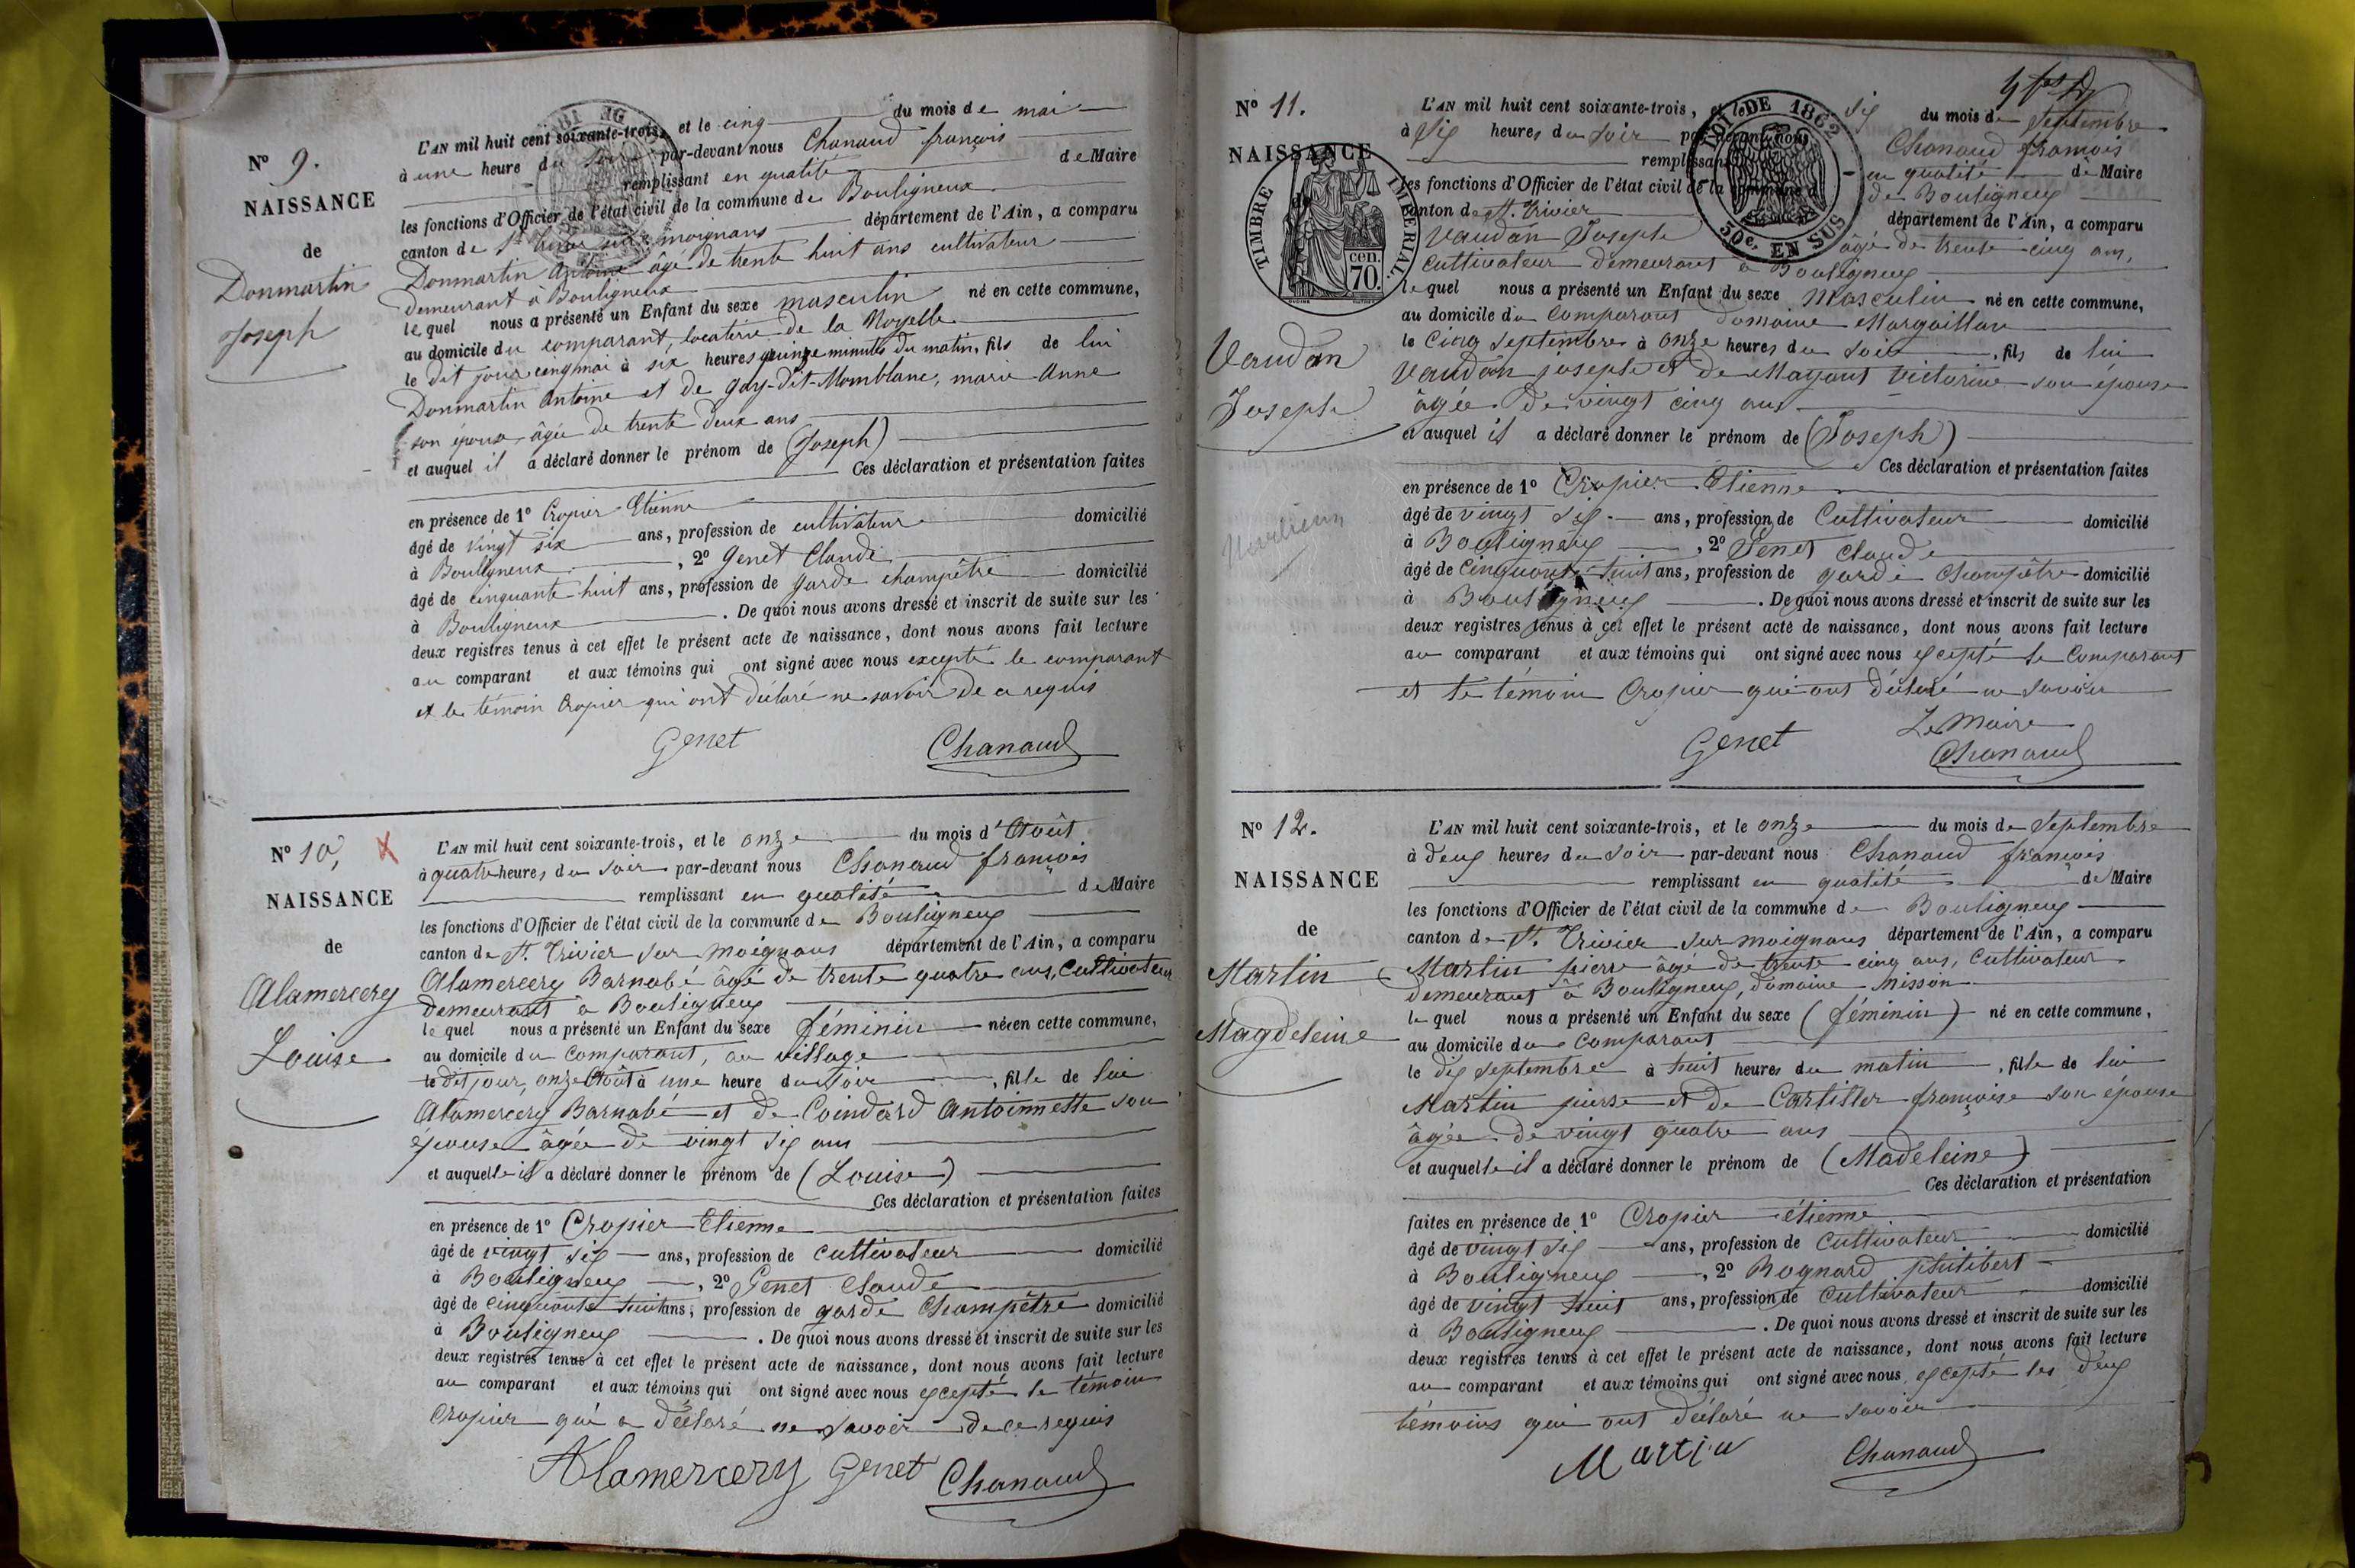 N° 9.
NAISSANCE
de
Donmartin
Joseph
L'AN mil huit cent soixante-trois, et le cinq du mois de mai
à une heure du soir par-devant nous Chanaud françois
remplissant en qualité de Maire
les fonctions d'Officier de l'état civil de la commune de Bouligneux
canton de St Trivier sur moignans département de l'Ain, a comparu
Donmartin Antoine âgé de trente huit ans cultivateur
demeurant à Bouligneux
lequel nous a présenté un Enfant du sexe masculin né en cette commune,
au domicile du comparant, locaterie de la Noyelle
le dit jour cinq mai à six heures quinze minutes du matin, fils de lui
Donmartin Antoine et de Guy-dit-Momblanc, marie-Anne
son épouse âgée de trente deux ans
et auquel il a déclaré donner le prénom de (Joseph)
Ces déclaration et présentation faites
en présence de 1° Cropier Etienne
âgé de vingt six ans, profession de cultivateur domicilié
à Bouligneux, 2° Genet Claude
âgé de cinquante huit ans, profession de garde champêtre domicilié
à Bouligneux. De quoi nous avons dressé et inscrit de suite sur les
deux registres tenus à cet effet le présent acte de naissance, dont nous avons fait lecture
au comparant et aux témoins qui ont signé avec nous excepté le comparant
et le témoin Cropier qui ont déclaré ne savoir de ce requis
Genet Chanaud
N° 10, X
NAISSANCE
de
Alamercery
Louise
L'AN mil huit cent soixante-trois, et le onze du mois d'Août
à quatre heures du soir par-devant nous Chanaud françois
remplissant en qualité de Maire
les fonctions d'Officier de l'état civil de la commune de Bouligneux
canton de St. Trivier sur moignans département de l'Ain, a comparu
Alamercery Barnabé âgé de trente quatre ans, Cultivateur
demeurant à Bouligneux
lequel nous a présenté un Enfant du sexe féminin née en cette commune,
au domicile du comparant, au village
le dit jour, onze Août à une heure du soir, fille de lui
Alamercery Barnabé et de Coindard Antoinnette son
épouse âgée de vingt six ans
et auquelle il a déclaré donner le prénom de (Louise)
Ces déclaration et présentation faites
en présence de 1° Cropier Etienne
âgé de vingt six ans, profession de cultivateur domicilié
à Bouligneux, 2° Genet Claude
âgé de cinquante huit ans, profession de garde Champêtre domicilié
à Bouligneux. De quoi nous avons dressé et inscrit de suite sur les
deux registres tenus à cet effet le présent acte de naissance, dont nous avons fait lecture
au comparant et aux témoins qui ont signé avec nous excepté le témoin
Cropier qui a déclaré ne savoir de ce requis
Alamercery Genet Chanaud
N° 11.
NAISSANCE
de
TIMBRE IMPERIAL.
cen.
70.
LOI DE 1862
50c. EN SUS
Vaudan
Joseph
L'AN mil huit cent soixante-trois, et le six du mois de Septembre
à six heures du soir par-devant nous Chanaud françois
remplissant en qualité de Maire
les fonctions d'Officier de l'état civil de la commune de Bouligneux
canton de St. Trivier département de l'Ain, a comparu
Vaudan Joseph âgé de trente cinq ans,
cultivateur demeurant à Bouligneux
lequel nous a présenté un Enfant du sexe Masculin né en cette commune,
au domicile du comparant domaine Margaillan
le Cinq Septembre à onze heures du soir, fils de lui
Vaudan joseph et de Mayant Victorine son épouse
âgée de vingt cinq ans
et auquel il a déclaré donner le prénom de (Joseph)
Ces déclaration et présentation faites
en présence de 1° Cropier Etienne
âgé de vingt six ans, profession de Cultivateur domicilié
à Bouligneux, 2° Genet Claude
âgé de cinquante huit ans, profession de garde Champêtre domicilié
à Bouligneux. De quoi nous avons dressé et inscrit de suite sur les
deux registres tenus à cet effet le présent acte de naissance, dont nous avons fait lecture
au comparant et aux témoins qui ont signé avec nous excepté le Comparant
et le témoin Cropier qui ont déclaré ne savoir
Le Maire
Genet Chanaud
N° 12.
NAISSANCE
de
Martin
Magdeleine
L'AN mil huit cent soixante-trois, et le onze du mois de Septembre
à deux heures du soir par-devant nous Chanaud françois
remplissant en qualité de Maire
les fonctions d'Officier de l'état civil de la commune de Bouligneux
canton de St. Trivier sur moignans département de l'Ain, a comparu
Martin pierre âgé de trente cinq ans, Cultivateur
demeurant à Bouligneux, domaine Misson
lequel nous a présenté un Enfant du sexe (féminin) né en cette commune,
au domicile du Comparant
le dix septembre à huit heures du matin, fille de lui
Martin pierre et de Cartiller françoise son épouse
âgée de vingt quatre ans
et auquelle il a déclaré donner le prénom de (Madeleine)
Ces déclaration et présentation
faites en présence de 1° Cropier étienne
âgé de vingt six ans, profession de Cultivateur domicilié
à Bouligneux, 2° Bognard philibert
âgé de vingt huit ans, profession de Cultivateur domicilié
à Bouligneux. De quoi nous avons dressé et inscrit de suite sur les
deux registres tenus à cet effet le présent acte de naissance, dont nous avons fait lecture
au comparant et aux témoins qui ont signé avec nous, excepté les deux
témoins qui ont déclaré ne savoir
Martin Chanaud